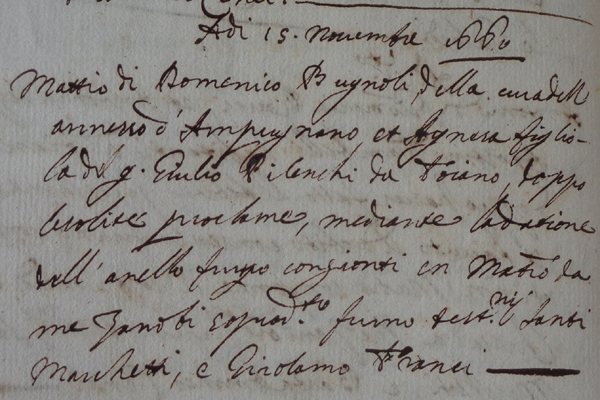 Adi 15. Novembre 1660
Mattio di Domenico Bugnoli della cura dell
annesso d'Ampugnano, et Agnesa figlio-
la di g. Giulio Pilenchi da Toiano, doppo
le solite proclame, mediante la datione
dell'anello furno congionti in Matio da
me Zanobi soprad.to furno test.nij Santi
Marchetti, e Girolamo Franci